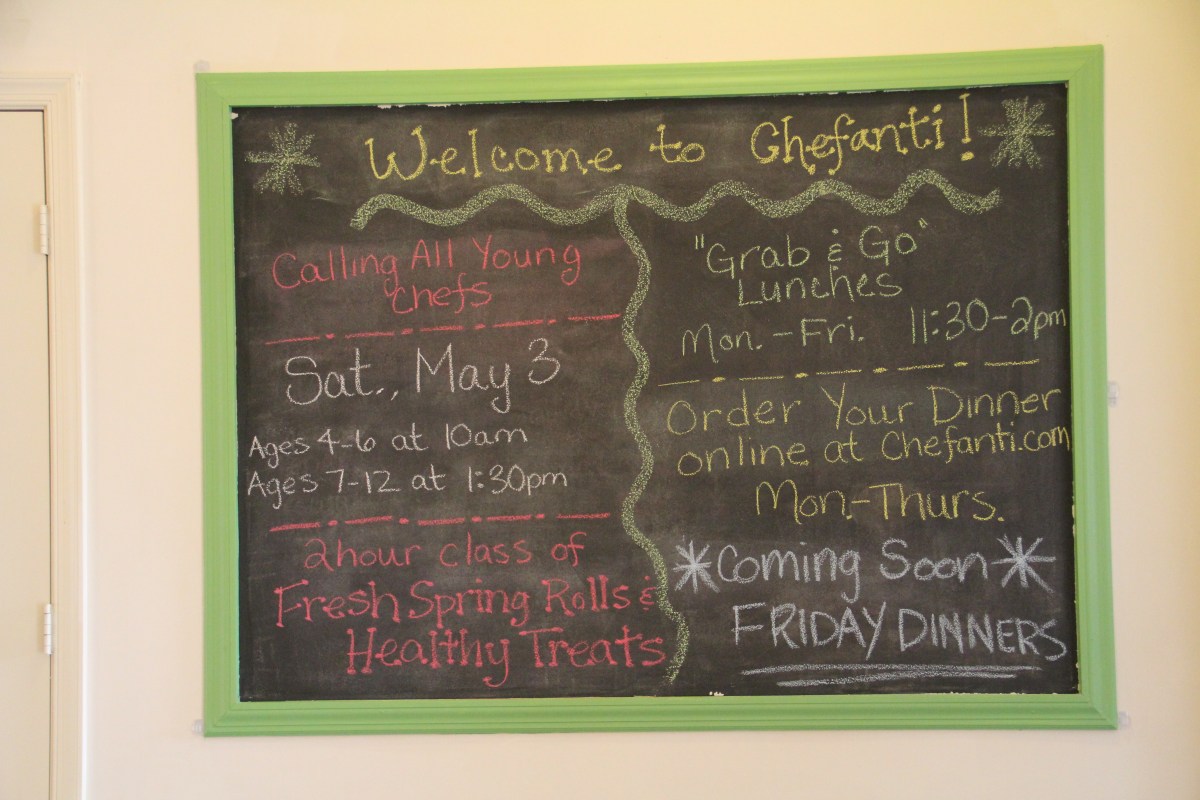 Welcome to Chefanti!
Calling All Young
Chefs
Sat., May 3
Ages 4-6 at 10am
Ages 7-12 at 1:30pm
2 hour class of
Fresh Spring Rolls &
Healthy Treats
"Grab & Go"
Lunches
Mon. - Fri. 11:30-2pm
Order Your Dinner
online at Chefanti.com
Mon-Thurs.
*Coming Soon*
FRIDAY DINNERS